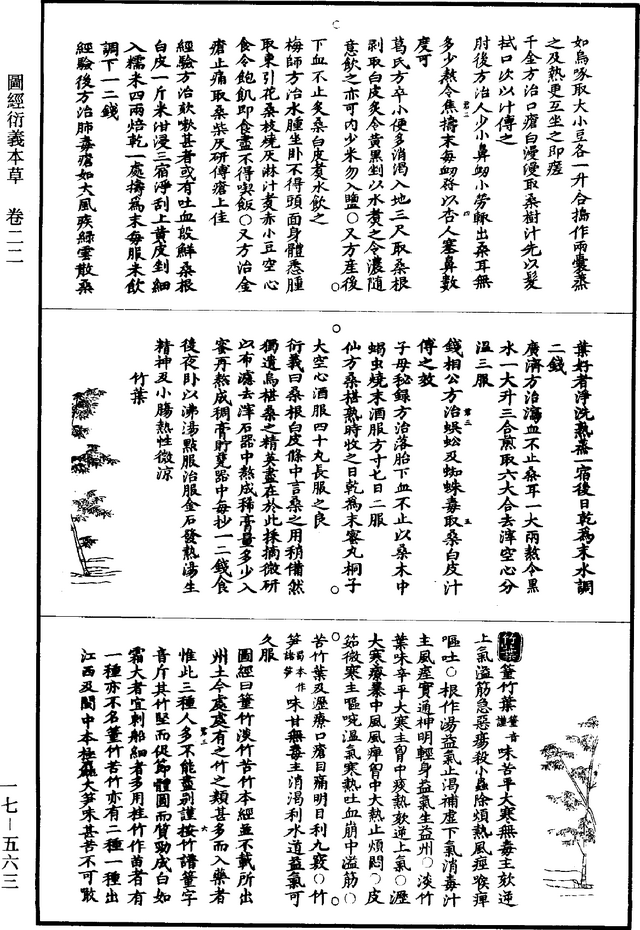 圖經衍義本草 卷二二
如烏啄取大小豆各一升合搗作兩囊蒸
之及熱更互坐之即瘥
千金方治口瘡白漫漫取桑樹汁先以髮
拭口次以汁傅之
肘後方治人少小鼻衂小勞輒出桑耳無
多少熬令焦擣末每衂發以杏人塞鼻數
度可
葛氏方卒小便多消渴入地三尺取桑根
剥取白皮炙令黃黑剉以水煑之令濃隨
意飲之亦可内少米勿入鹽○又方産後
下血不止炙桑白皮煑水飲之
梅師方治水腫坐卧不得頭面身體悉腫
取東引花桑枝燒灰淋汁煑赤小豆空心
食令飽飢即食盡不得喫飯○又方治金
瘡止痛取桑柴灰研傅瘡上佳
經驗方治欬嗽甚者或有吐血殷鮮桑根
白皮一斤米泔浸三宿淨刮上黃皮剉細
入糯米四兩焙乾一處擣爲末每服米飲
調下一二錢
經驗後方治肺毒瘡如大風疾緑雲散桑
葉好者淨洗熟蒸一宿後日乾爲末水調
二錢
廣濟方治瀉血不止桑耳一大兩熬令黑
水一大升三合煎取六大合去滓空心分
温三服
錢相公方治蜈蚣及蜘蛛毒取桑白皮汁
傅之效
子母秘録方治落胎下血不止以桑木中
蝎虫燒末酒服方寸匕日二服
仙方桑椹熟時收之日乾爲末蜜丸桐子
大空心酒服四十丸長服之良
衍義曰桑根白皮條中言桑之用稍備然
獨遺烏椹桑之精英盡在於此採摘微研
以布濾去滓石器中熬成稀膏量多少入
蜜再熬成稠膏貯甆器中每抄一二錢食
後夜卧以沸湯點服治服金石發熱湯生
精神及小腸熱性微涼
竹葉
竹葉 䈽竹葉 味苦平大寒無毒主欬逆
上氣溢筋急惡瘍殺小蟲除煩熱風痙喉痺
嘔吐○根作湯益氣止渴補虛下氣消毒汁
主風痙實通神明輕身益氣生益州○淡竹
葉味辛平大寒主胷中痰熱欬逆上氣○瀝
大寒療暴中風風痺胷中大熱止煩悶○皮
筎微寒主嘔啘温氣寒熱吐血崩中溢筋○
苦竹葉及瀝療口瘡目痛明目利九竅○竹
笋 味甘無毒主消渴利水道益氣可
久服
圖經曰䈽竹淡竹苦竹本經並不載所出
州土今處處有之竹之類甚多而入藥者
惟此三種人多不能盡别謹按竹譜䈽字
音斤其竹堅而促節體圓而質勁皮白如
霜大者宜刺船細者多用桂竹作苗者有
一種亦不名䈽竹苦竹亦有二種一種出
江西及閩中本極麄大笋味甚苦不可噉
一七－五六三